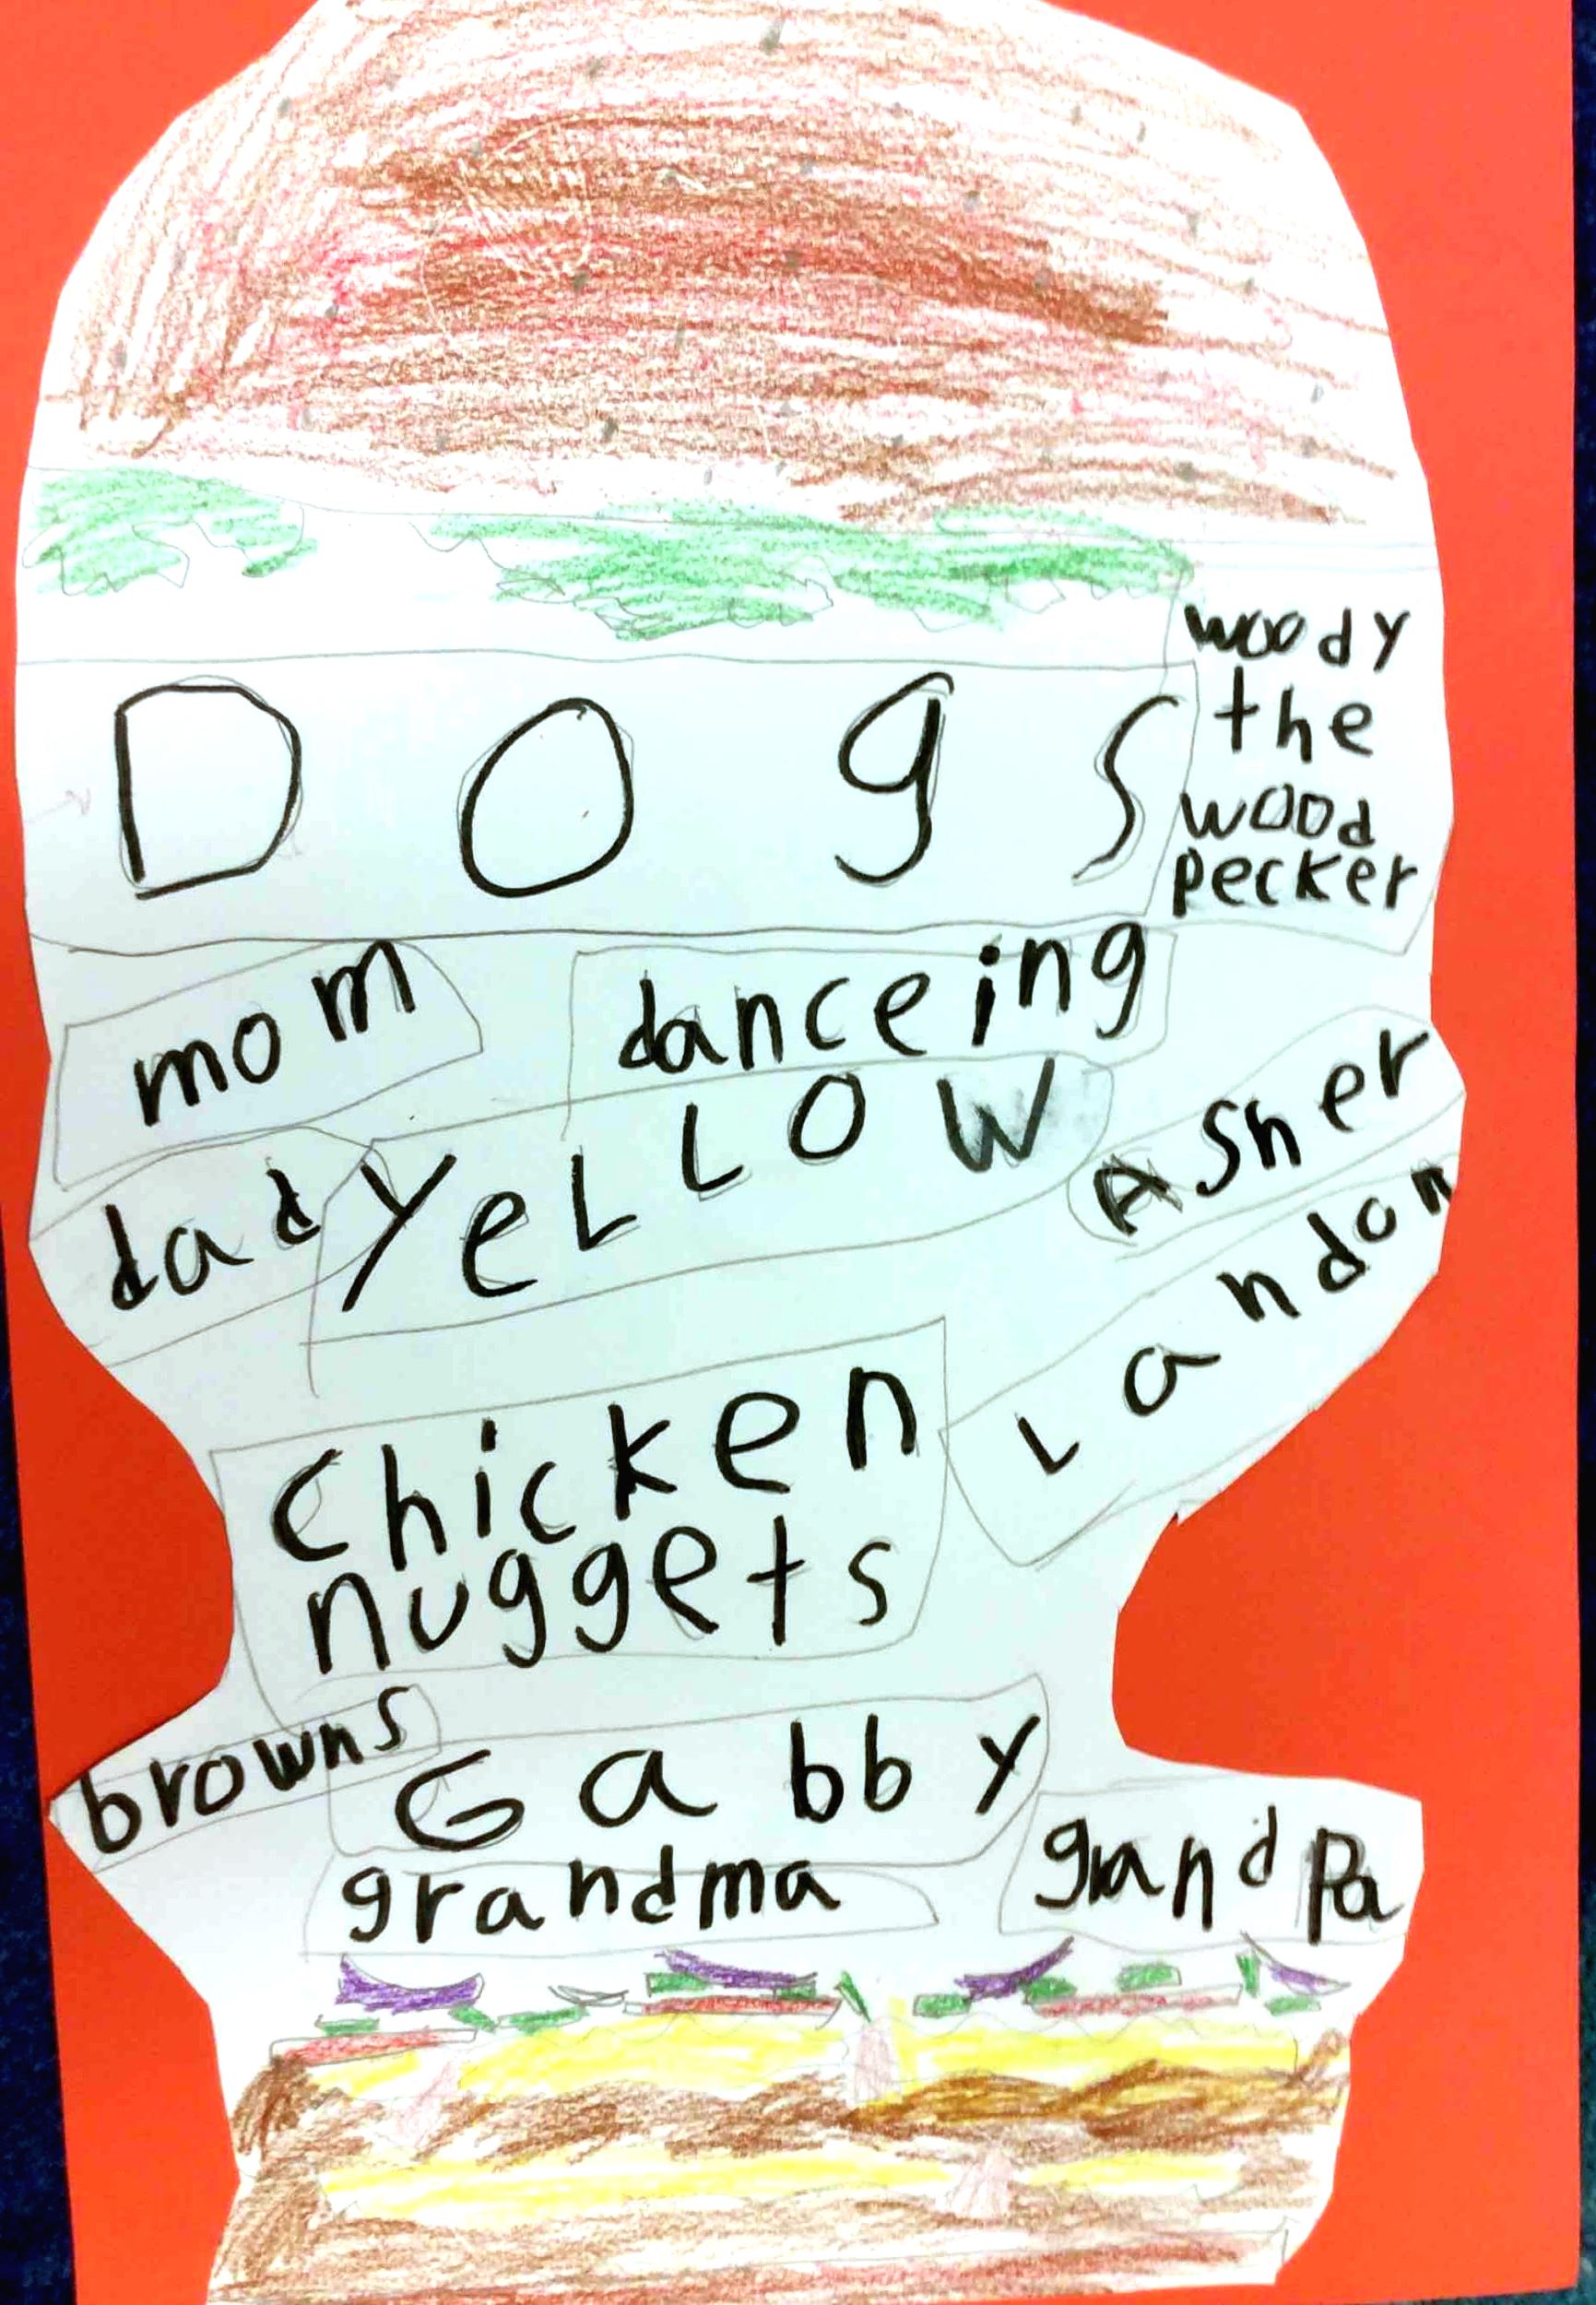 woody
the
wood
pecker
Dogs
mom
danceing
dad
YeLLOW
Asher
Landon
chicken
nuggets
browns
Gabby
grandma
grandpa